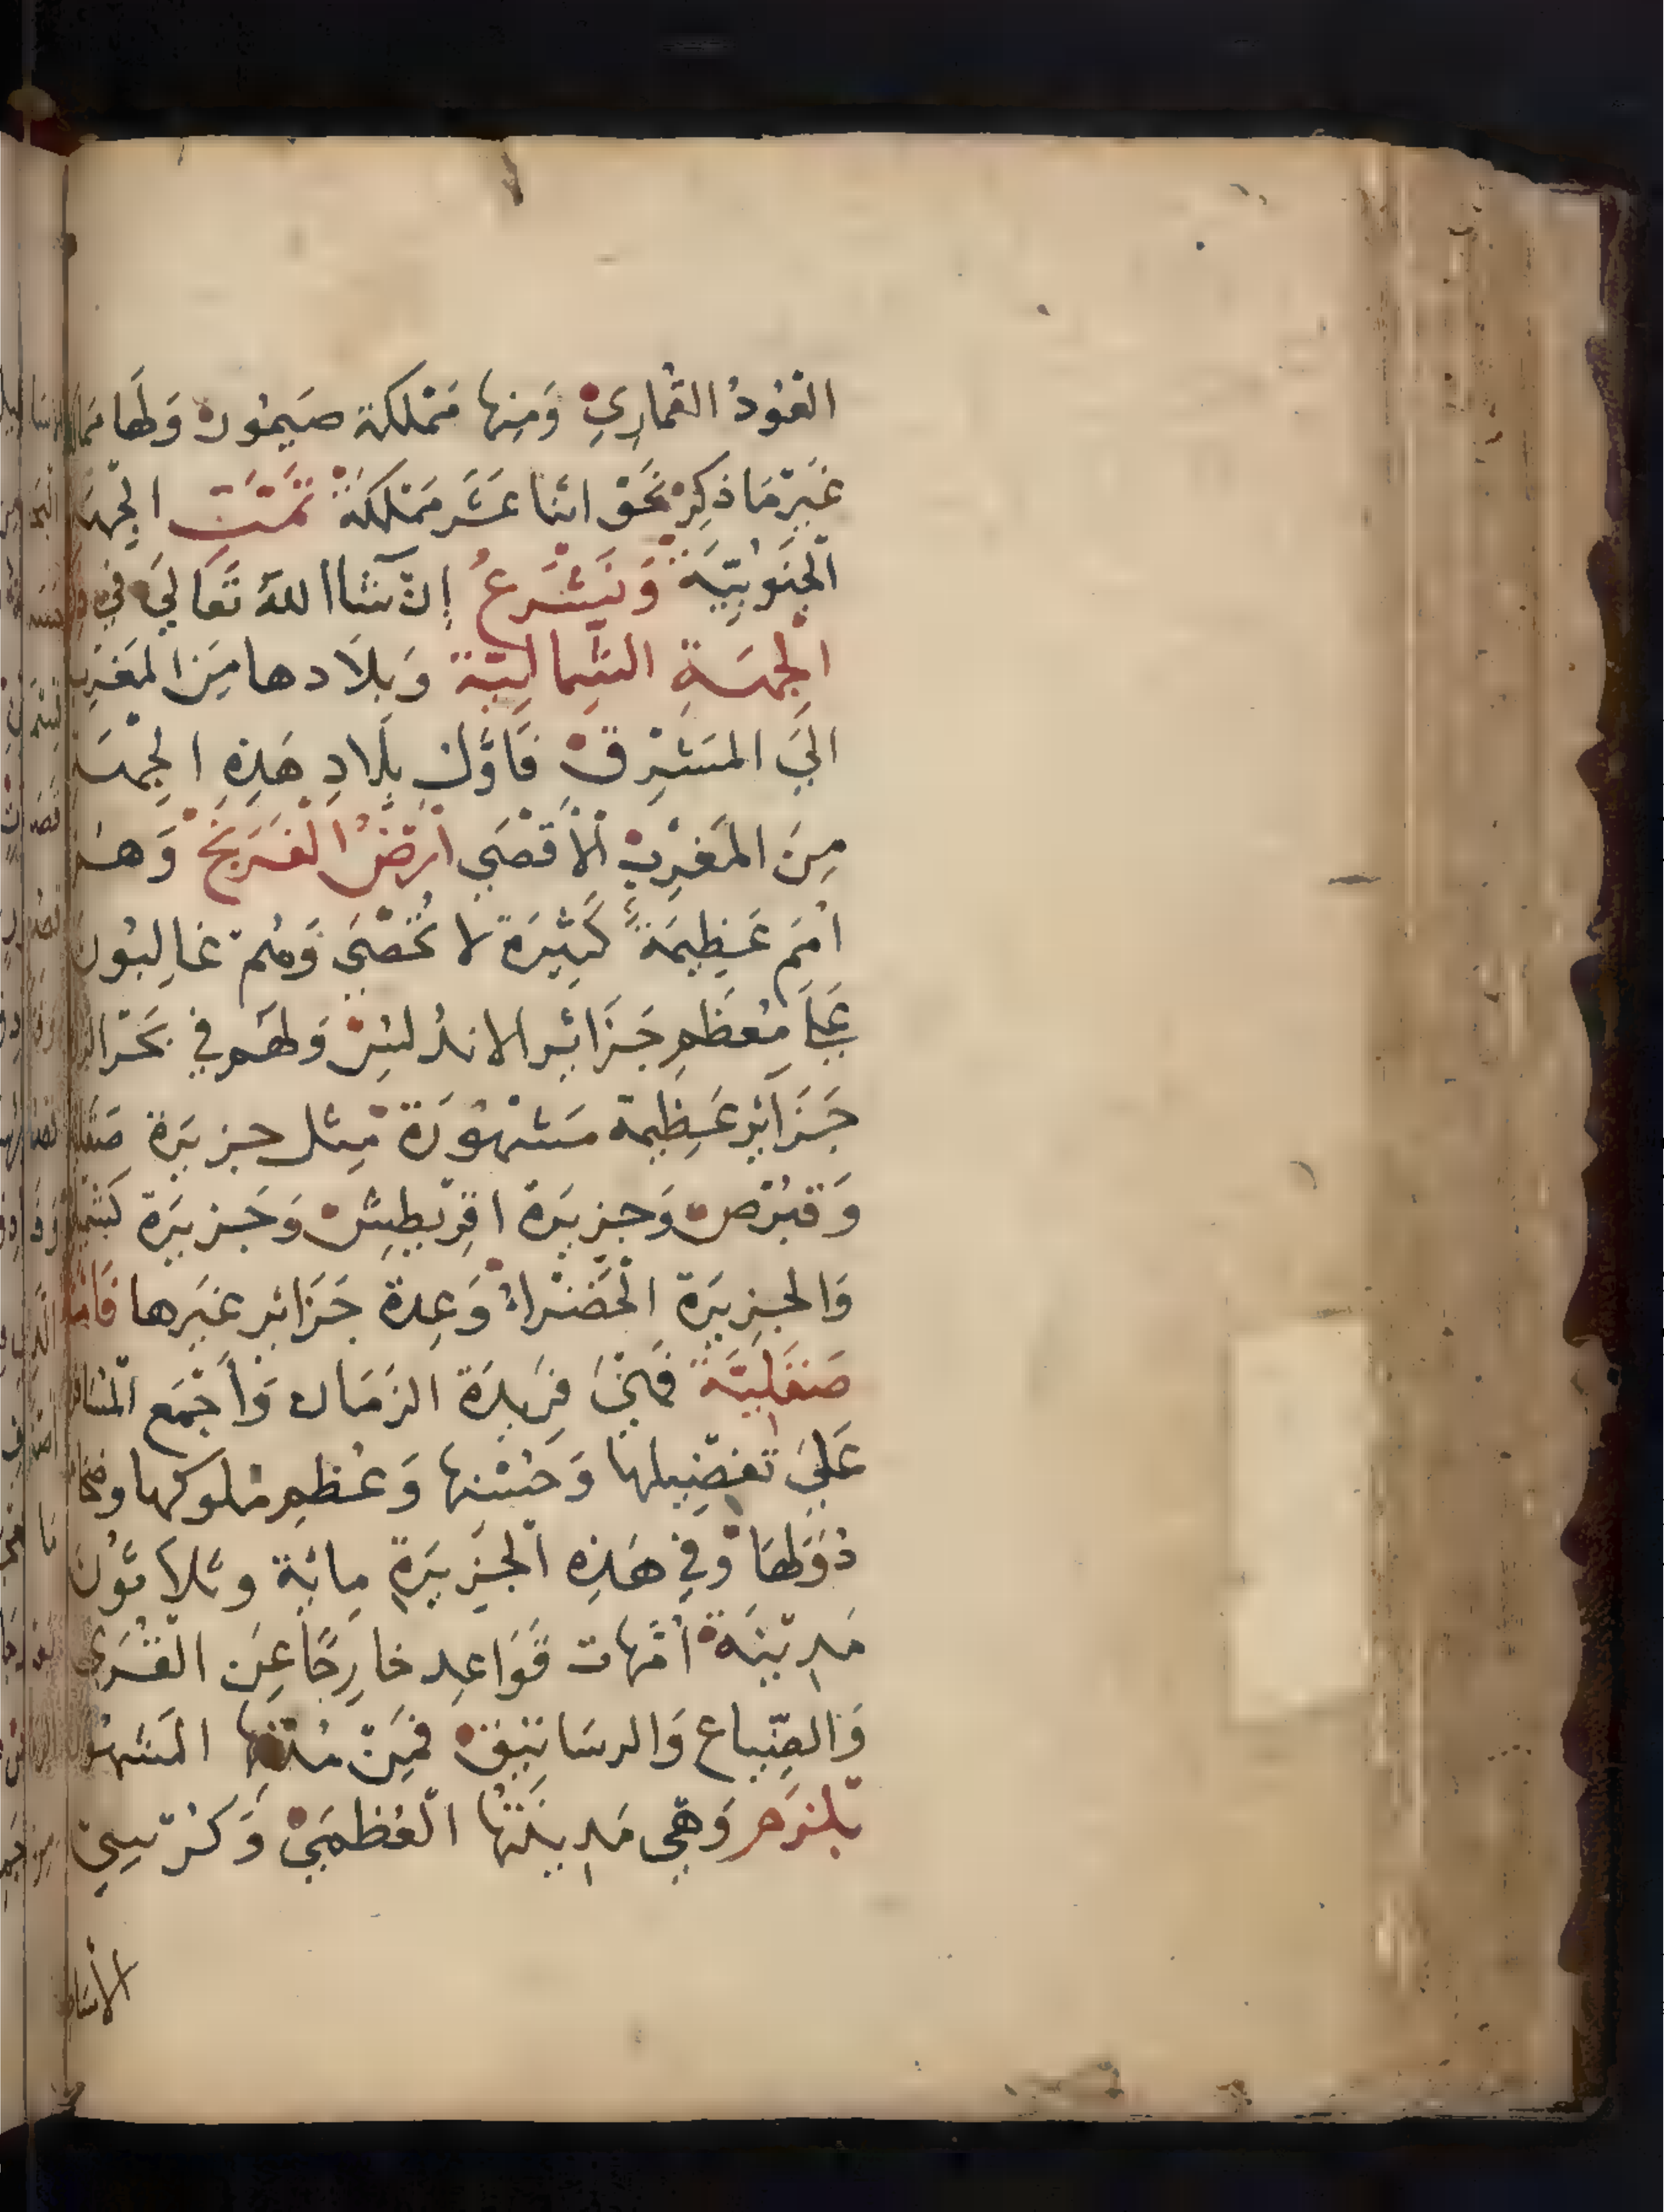 العُودُ القُماريِ وَمِنها مَمْلكة صَيمُور وَلهَا
غَيرُ مَا ذكِر نَحَو اثنا عَشَر مَمْلكَة تمَّت الجِهَة
الجنَوُبيَّة وَنَشْرعُ إن شَا اللهُ تَعَالَي في
الجِهَةِ الشَمالِيَّة وَبِلَادها مِنَ المَغرِب
الَي المَشْرِق فَاوَّل بِلَادِ هَذِهِ الجِهَة
مِنَ المَغرِب الأقصَي أرَضُ الفَرَنج وَهُم
أمَم عَظِيمَةُ كَثِيرَة لا تُحصَي وَهُم غالِبُون
عَلَي مُعظَمِ جَزَائِر الاندُلسِ وَلهَم في بَحَر
جَزَائِر عَظِيمة مَشهُوَرة مِثل جزيرَة
وَقبُرص وَجزيرَة اقِريطِش وَجَزيرَة
وَالجزِيرَة الخَضْرا وَعِدة جَزَائِر غَيرها فَامَّا
صَقَلِيَّة فَهِيَ فرَيدَة الزمَان وَأجمَع
عَلَي تفضِيلها وَحُسْنها وَعُظمِ مُلوكها
دُوَلهَا وَفي هَذِه الجَزِيرَةِ مائة وثلاثوُن
مَدِينَة أمَّهات قَوَاعِد خارِجًا عَن القُرَي
وَالضِّياع وَالرسَاتيق فمِنْ مُدنِها المَشهُور
بلنرَم وَهِي مَدِينَتُها العُظمَي وَكُرْسِي